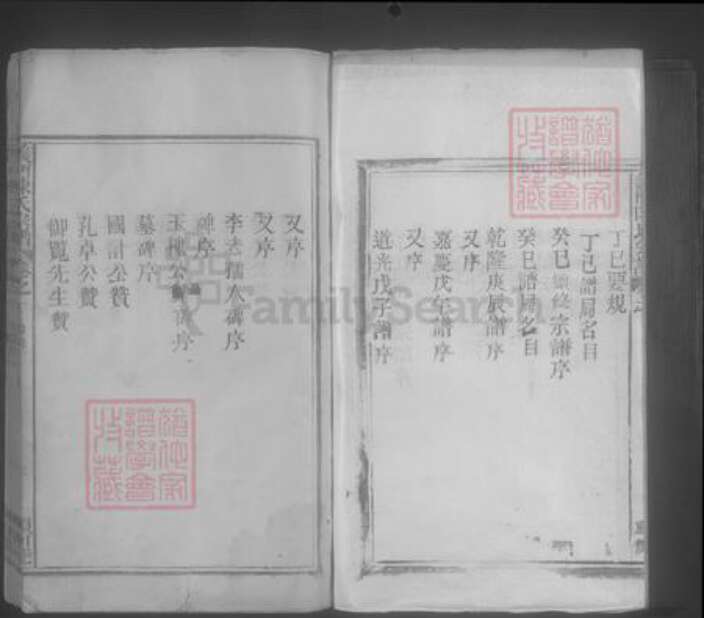 丁巳要規
丁巳譜局名目
癸巳續修宗譜序
癸巳譜局名目
乾隆庚辰譜序
又序
嘉慶戊午譜序
又序
道光戊子譜序
又序
又序
李孺人碑序
碑序
玉公序
墓碑序
國計公贊
孔卓公贊
御覽先生贊
FamilySearch
譜學會
特藏
譜學會
特藏